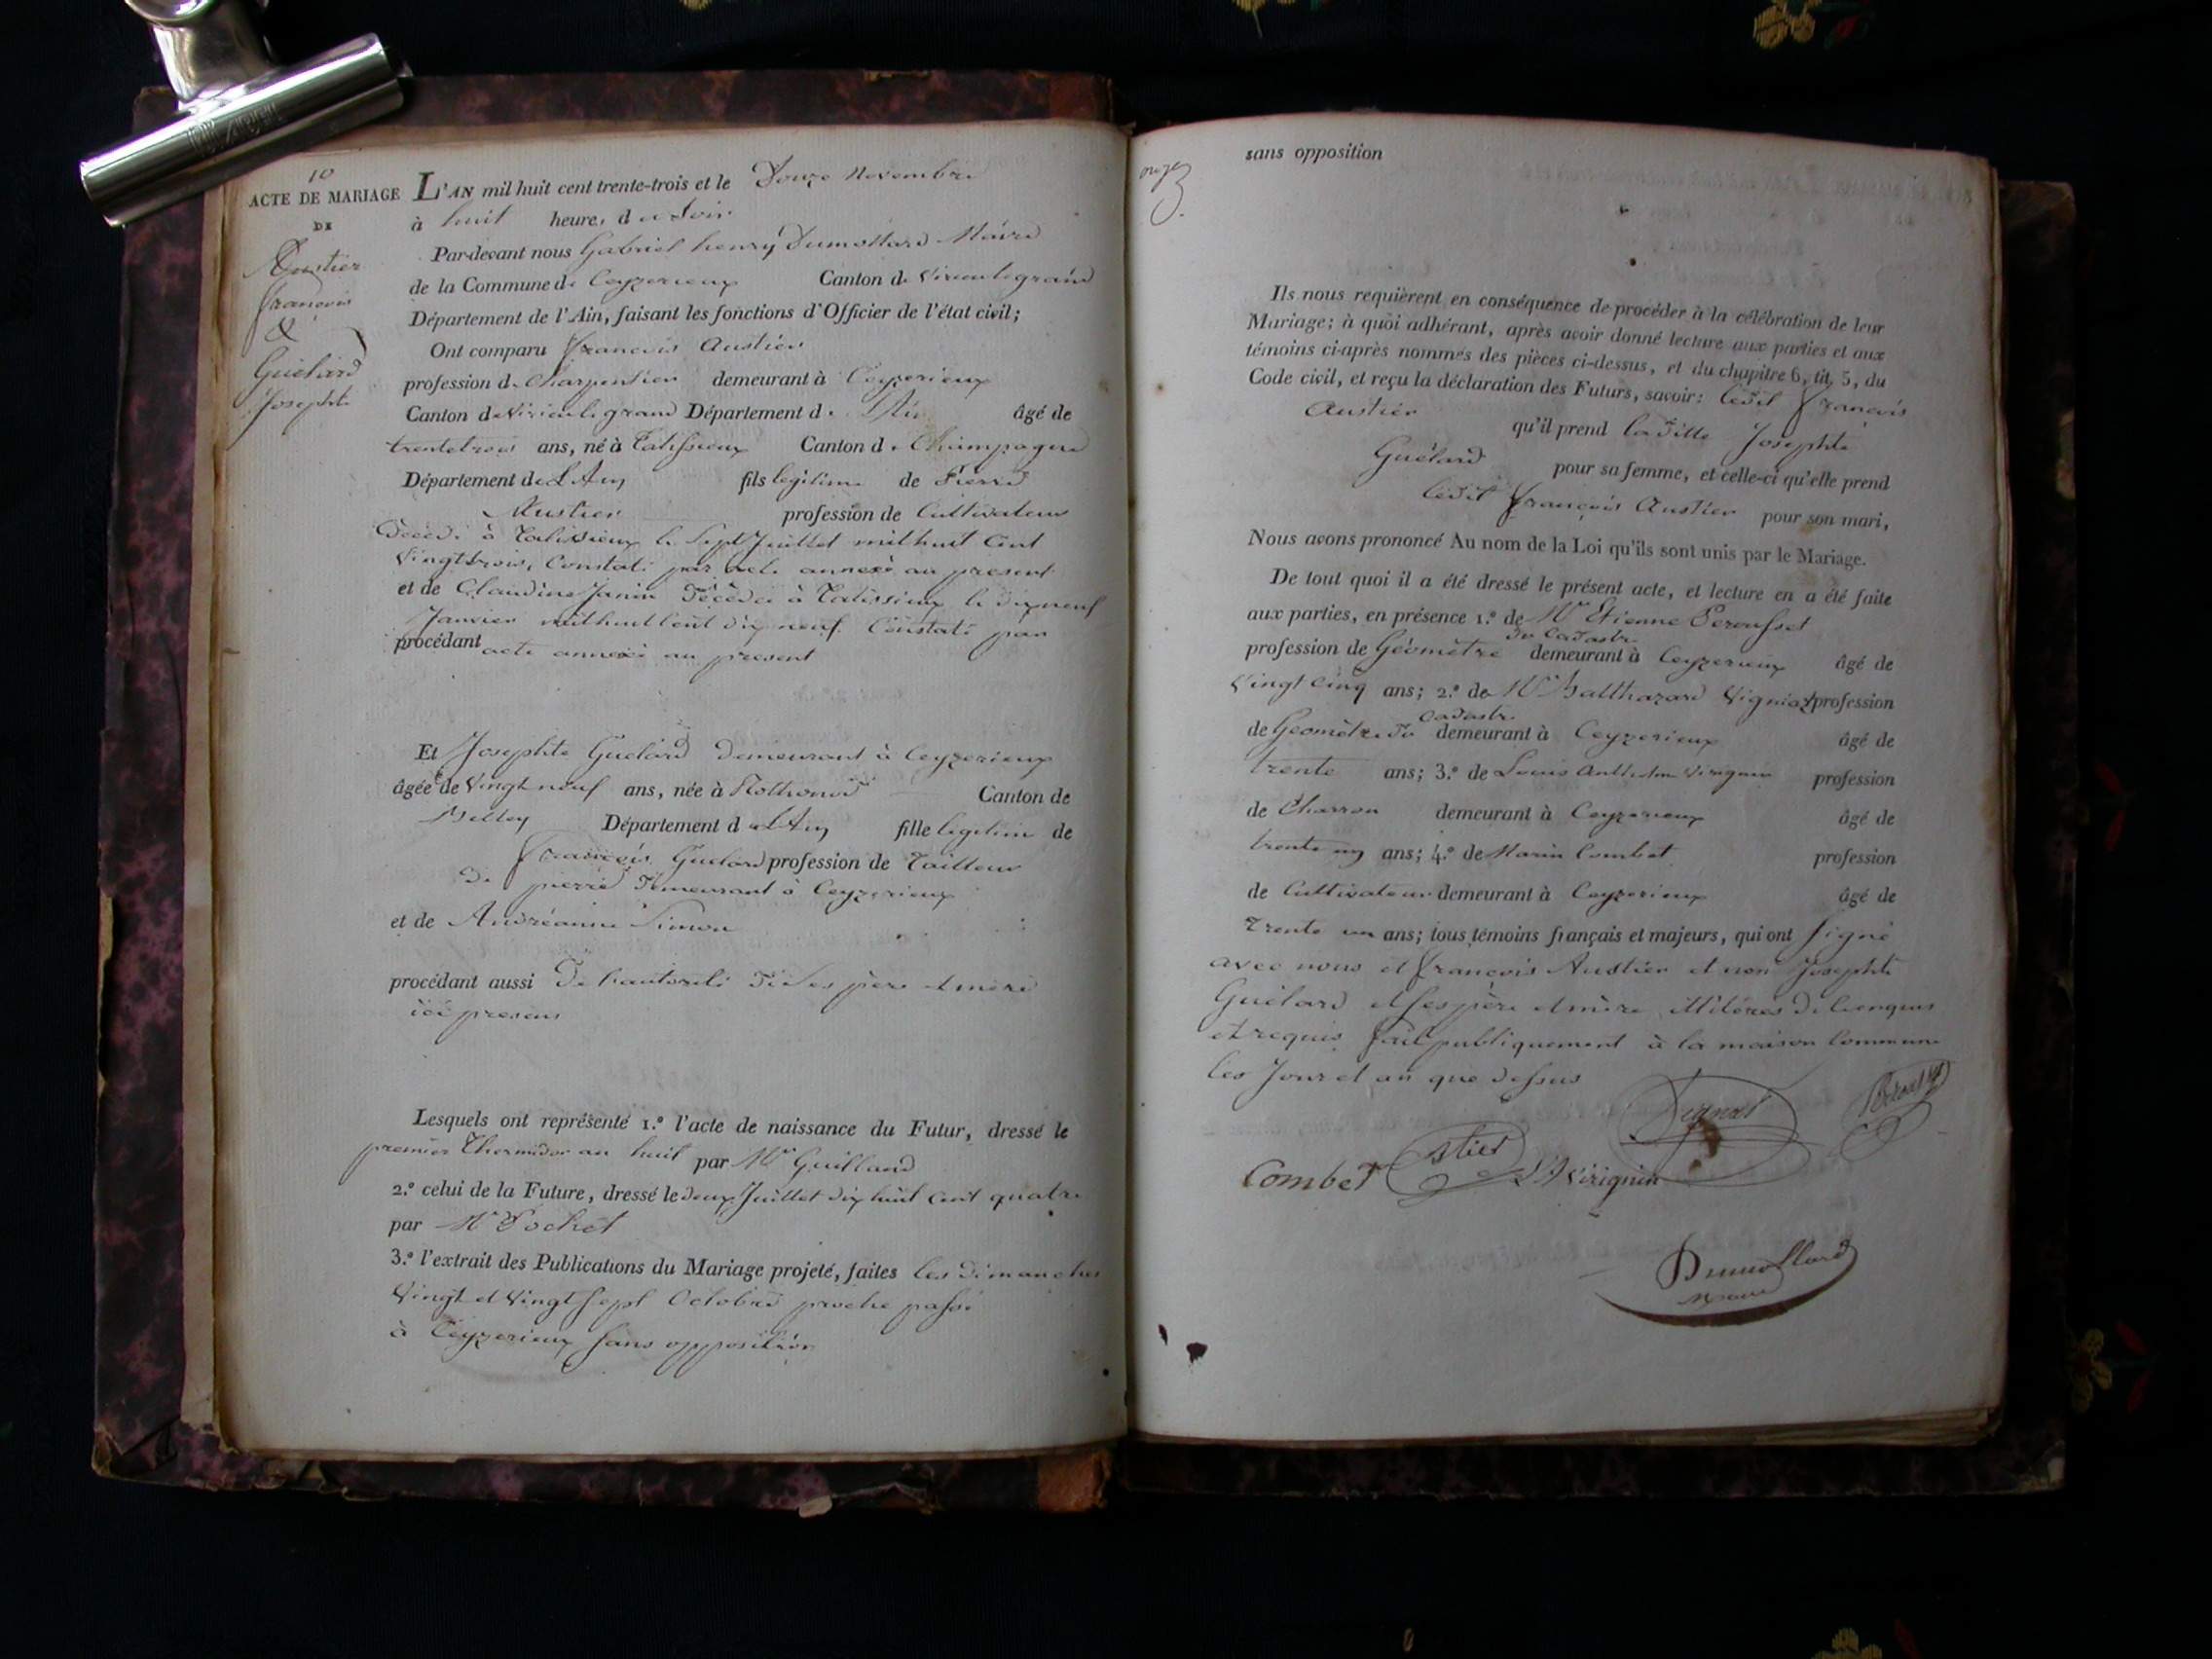 10
ACTE DE MARIAGE
DE
Austier
françois
&
Guélard
Josephte
L'AN mil huit cent trente-trois et le Douze Novembre
à huit heures du Soir
Par-devant nous Gabriel henry Dumollard Maire
de la Commune de Ceyzerieux Canton de Virieulegrand
Département de l'Ain, faisant les fonctions d'Officier de l'état civil;
Ont comparu françois Austier
profession de Charpentier demeurant à Ceyzerieux
Canton de Virieulegrand Département de L'Ain âgé de
trentetrois ans, né à Talissieux Canton de Champagne
Département de L'Ain fils legitime de Pierre
Austier profession de Cultivateur
Décédé à Talissieux le Sept Juillet milhuit Cent
Vingttrois, Constaté par acte annexé au present
et de Claudine Janin Décédée à Talissieux le dixneuf
Janvier milhuitCent dixneuf Constaté par
procédant acte annexé au present
Et Josephte Guelard demeurant à Ceyzerieux
âgée de Vingt neuf ans, née à Rothonod Canton de
Belley Département de L'Ain fille legitime de
françois Guelard profession de Tailleur
De pierre demeurant à Ceyzerieux
et de Andréanne Simon
procédant aussi De l'autorité de Ses père et mère
ici presens
Lesquels ont représenté 1.º l'acte de naissance du Futur, dressé le
premier Thermidor an huit par Mr Guilland
2.º celui de la Future, dressé le deux Juillet dix huit cent quatre
par Mr Pochet
3.º l'extrait des Publications du Mariage projeté, faites les dimanches
Vingt et Vingt Sept Octobre proche passé
à Ceyzerieux Sans opposition
onze
sans opposition
Ils nous requièrent en conséquence de procéder à la célébration de leur
Mariage; à quoi adhérant, après avoir donné lecture aux parties et aux
témoins ci-après nommés des pièces ci-dessus, et du chapitre 6, tit. 5, du
Code civil, et reçu la déclaration des Futurs, savoir: ledit françois
Austier qu'il prend laditte Josephte
Guélard pour sa femme, et celle-ci qu'elle prend
ledit françois Austier pour son mari,
Nous avons prononcé Au nom de la Loi qu'ils sont unis par le Mariage.
De tout quoi il a été dressé le présent acte, et lecture en a été faite
aux parties, en présence 1.º de Mr Etienne Perousset
profession de Géomètre du Cadastre demeurant à Ceyzerieux âgé de
Vingt Cinq ans; 2.º de Mr Balthazard Vignat profession
de Geomètre du Cadastre demeurant à Ceyzerieux âgé de
trente ans; 3.º de Louis Anthelme Virignin profession
de Charron demeurant à Ceyzerieux âgé de
trente un ans; 4.º de Marin Combet profession
de Cultivateur demeurant à Ceyzerieux âgé de
Trente un ans; tous témoins français et majeurs, qui ont Signé
avec nous et françois Austier et non Josephte
Guélard et ses père et mère illiteres de Cenquis
et requis fait publiquement à la maison Commune
les Jour et an que dessus
Vignat
Combet stier L A Virignin
Dumollard
maire